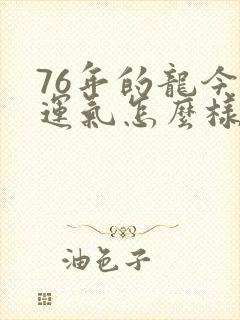 76年的龍今
運氣怎麼樣
油色子